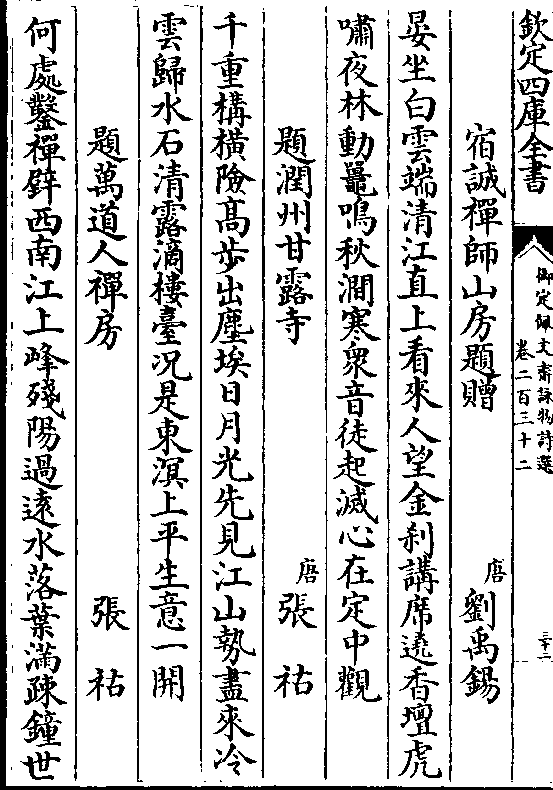 欽定四庫全書
御定佩文齋詠物詩選
卷二百三十二
三十二
宿誠禪師山房題贈 唐 劉禹錫
晏坐白雲端清江直上看來人望金刹講席遶香壇虎
嘯夜林動鼉鳴秋澗寒衆音徒起滅心在定中觀
題潤州甘露寺 唐 張祜
千重構橫險高步出塵埃日月光先見江山勢盡來冷
雲歸水石清露滴樓臺况是東溟上平生意一開
題萬道人禪房 張祜
何處鑿禪壁西南江上峰殘陽過遠水落葉滿疎鐘世